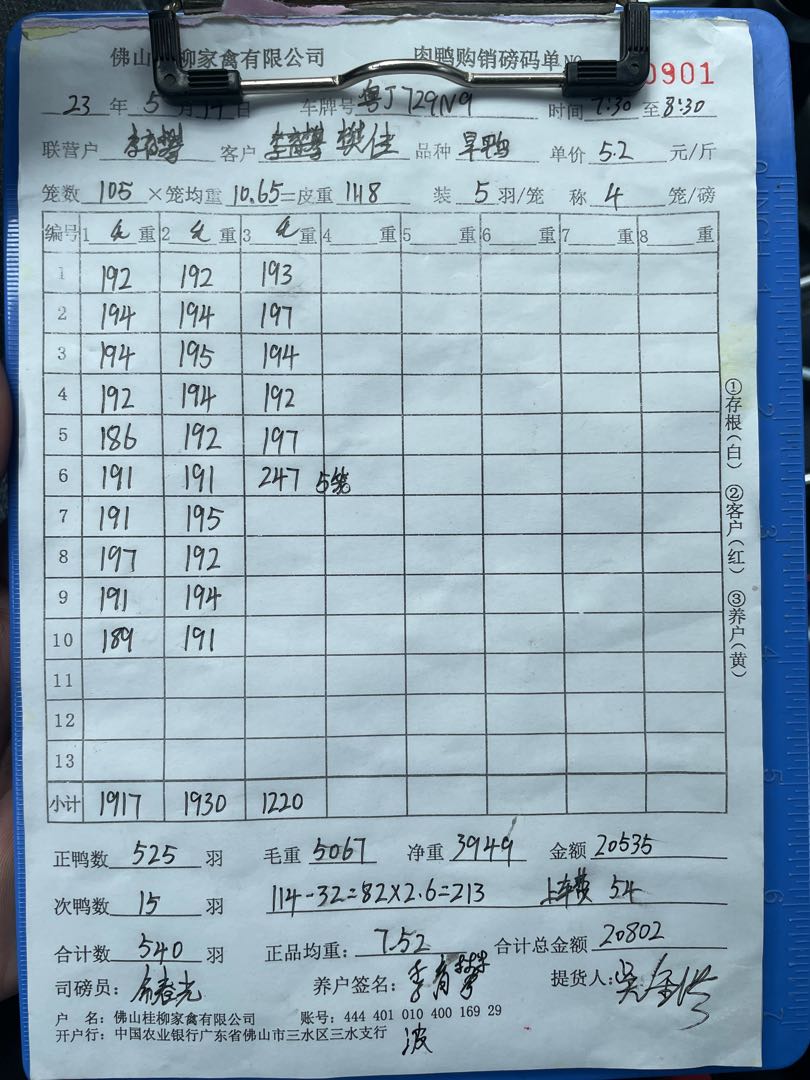 佛山桂柳家禽有限公司 肉鸭购销磅码单 NO 0901
23 年 5 月 19 日 车牌号 粤J729N9 时间 7:30 至 8:30
联营户 李育攀 客户 李育攀 樊佳 品种 旱鸭 单价 5.2 元/斤
笼数 105 ×笼均重 10.65=皮重 1118 装 5 羽/笼 称 4 笼/磅
编号 1 毛 重 2 毛 重 3 毛 重 4 重 5 重 6 重 7 重 8 重
1 192 192 193
2 194 194 197
3 194 195 194
4 192 194 192
5 186 192 197
6 191 191 247 5笼
7 191 195
8 197 192
9 191 194
10 189 191
11
12
13
小计 1917 1930 1220
正鸭数 525 羽 毛重 5067 净重 3949 金额 20535
次鸭数 15 羽 114-32=82×2.6=213 上车费 54
合计数 540 羽 正品均重: 7.52 合计总金额 20802
司磅员: 养户签名: 李育攀 提货人:
户 名: 佛山桂柳家禽有限公司 账号: 444 401 010 400 169 29
开户行: 中国农业银行广东省佛山市三水区三水支行 波
①存根(白) ②客户(红) ③养户(黄)